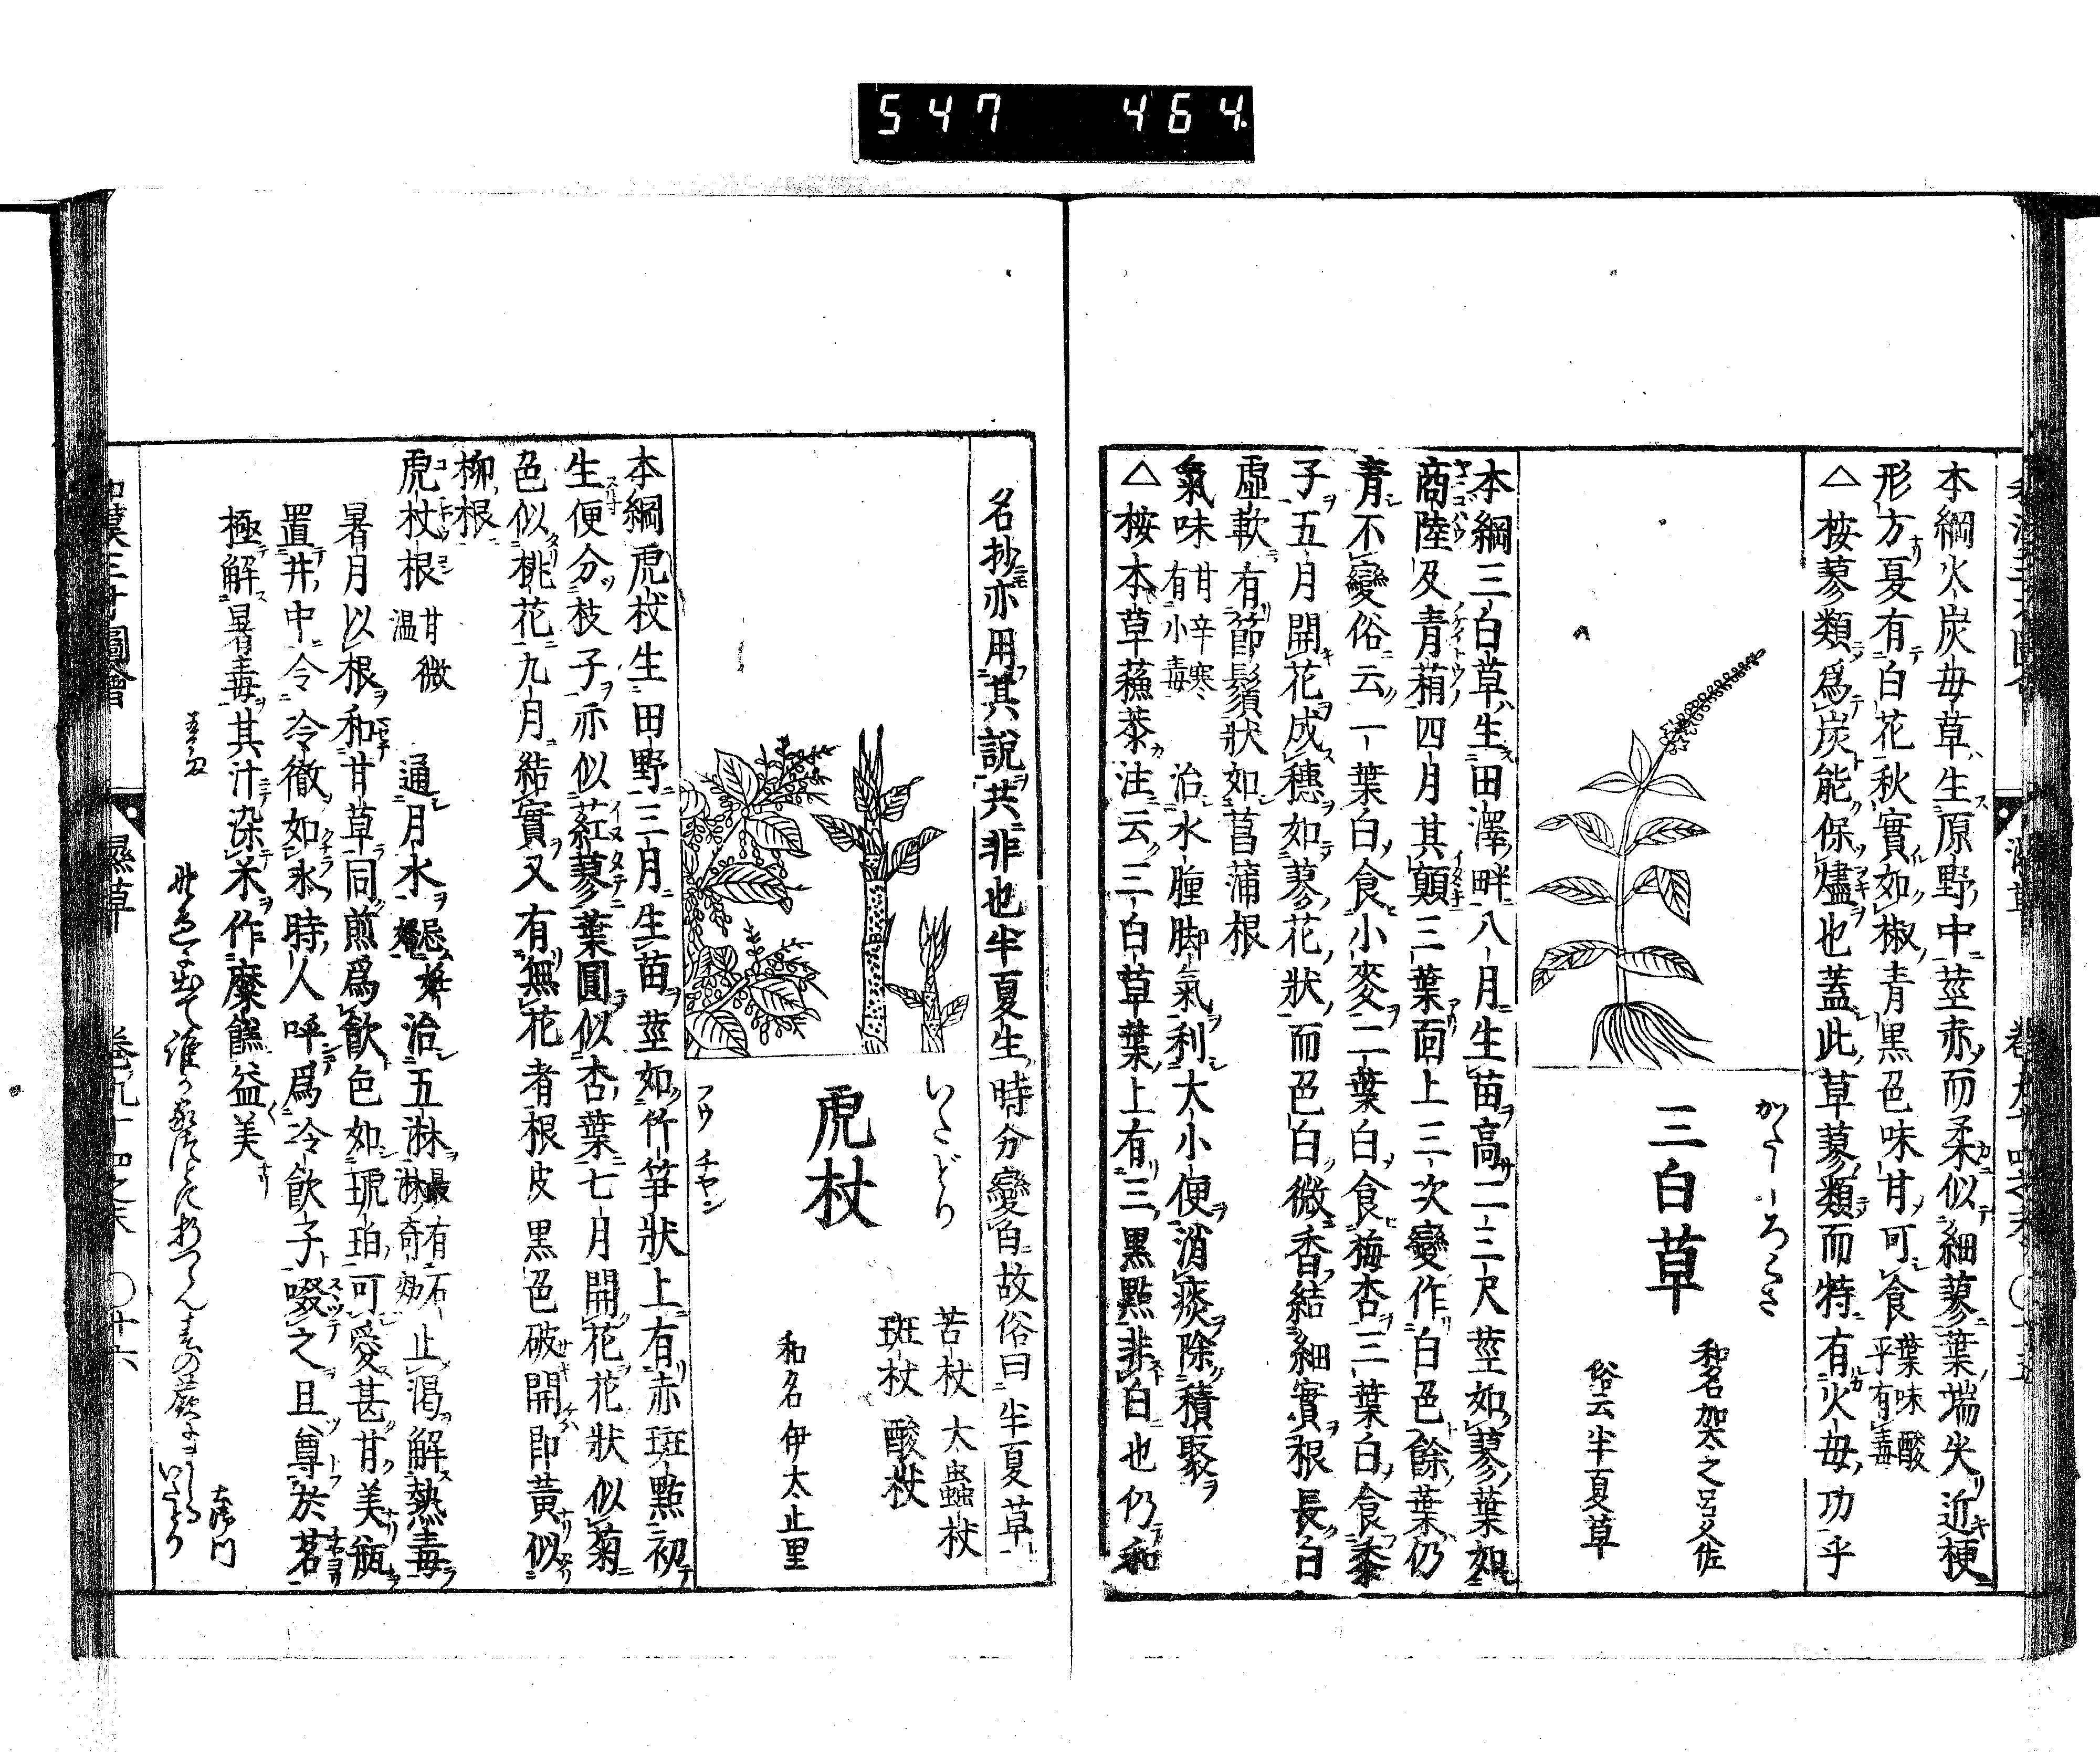 547 464.
本綱火炭毋草生原野中莖赤而柔似細蓼葉端尖近梗
形方夏有白花秋實如椒青黑色味甘可食葉味酸乎有毒
△按蓼類爲炭能保燼也蓋此草蓼類而特有火毋功乎
かたしろくさ
三白草
和名加太之呂久佐
俗云半夏草
本綱三白草生田澤畔八月生苗高二三尺莖如蓼葉如
商陸及青葙四月其顛三葉面上三次變作白色餘葉仍
青不變俗云一葉白食小麥二葉白食梅杏三葉白食黍
子五月開花成穗如蓼花狀而色白微香結細實根長白
虛軟有節鬚狀如菖蒲根
氣味甘辛寒有小毒 治水腫脚氣利大小便消痰除積聚
△按本草蘓恭注云三白草葉上有三黑點非白也仍和
名抄亦用其說共非也半夏生時分變白故俗曰半夏草
いたどり
虎杖
フウ チヤン
苦杖 大蟲杖
斑杖 酸杖
和名伊太止里
本綱虎杖生田野三月生苗莖如竹笋狀上有赤斑點初
生便分枝子亦似葒蓼葉圓似杏葉七月開花花狀似菊
色似桃花九月結實又有無花者根皮黑色破開即黃似
柳根
虎杖根甘微溫 通月水忌妊治五淋最有石淋奇効止渴解熱毒
暑月以根和甘草同煎爲飲色如琥珀可愛甚甘美瓶
置井中令冷徹如氷時人呼爲冷飲子啜之且尊於茗
極解暑毒其汁染米作糜餻益美
和漢三才圖會 濕草 卷九十四之末 〇廿六